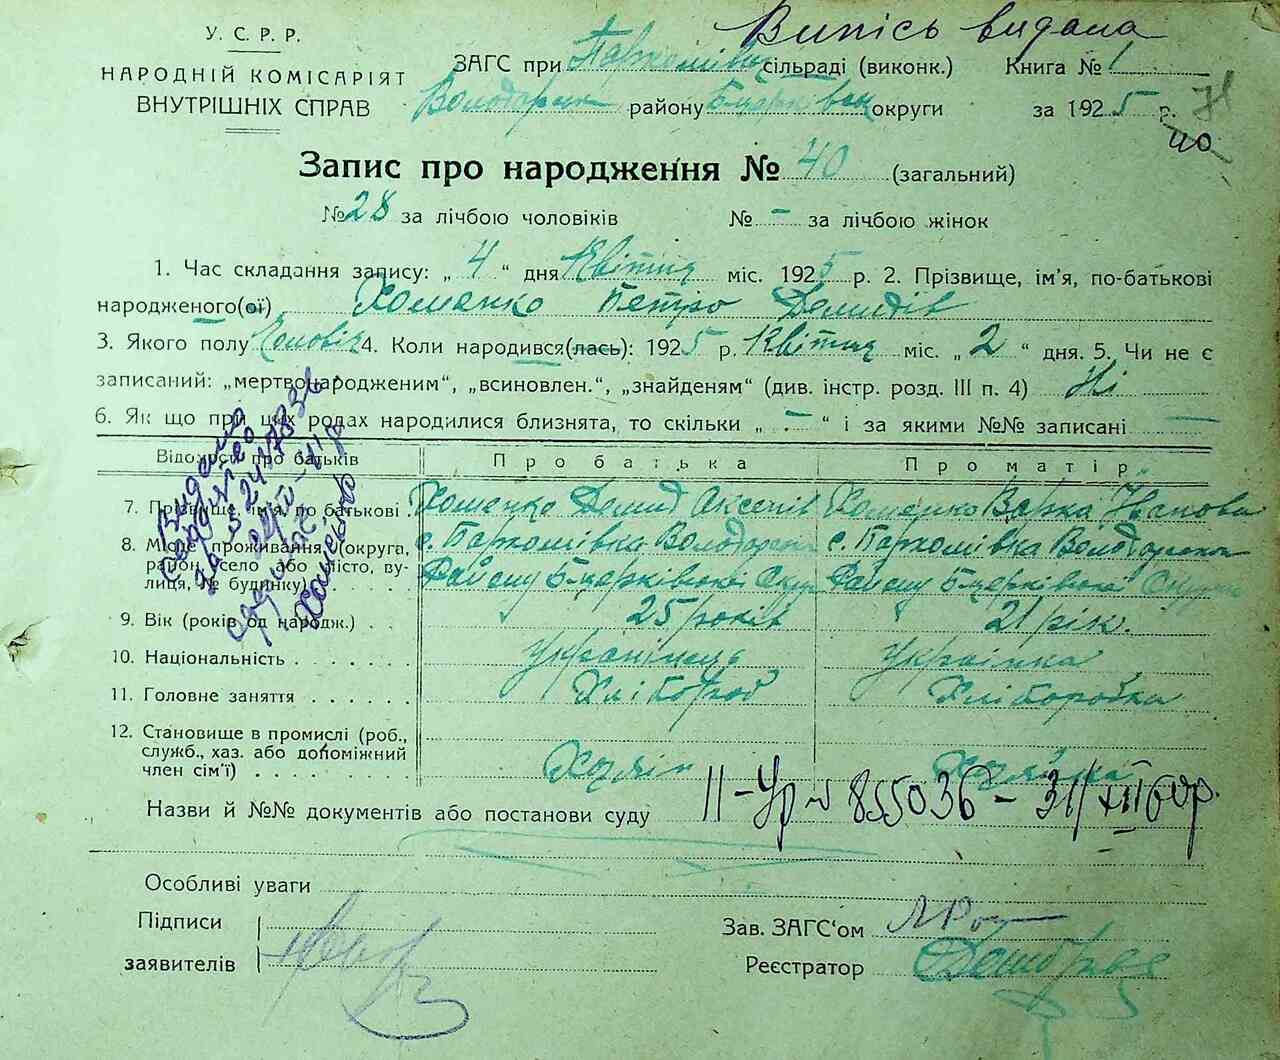 Випісь видана
У. С. Р. Р.
НАРОДНІЙ КОМІСАРІЯТ
ВНУТРІШНІХ СПРАВ
ЗАГС при Пархомівк сільраді (виконк.) Книга № 1
Володарськ району Б-церківськ округи за 1925 р.
40
Запис про народження № 40 (загальний)
№ 28 за лічбою чоловіків № - за лічбою жінок
1. Час складання запису: „ 4 “ дня Квітня міс. 1925 р. 2. Прізвище, ім'я, по-батькові
народженого(ої) Хоменко Петро Демидів
3. Якого полу Чоловік 4. Коли народився(лась): 1925 р. Квітня міс. „ 2 “ дня. 5. Чи не є
записаний: „мертвонародженим“, „всиновлен.“, „знайденям“ (див. інстр. розд. III п. 4) Ні
6. Як що при цих родах народилися близнята, то скільки „ - “ і за якими №№ записані —
Відомости про батьків Про батька Про матір
7. Прізвище, ім'я, по батькові Хоменко Демид Аксенів Хоменко Варка Іванова
8. Місце проживання (округа, с. Пархомівка Володарськ с. Пархомівка Володарськ
район, село або місто, ву-
лиця, № будинку) Району Б-церківської Округи Району Б-церківської Округи
9. Вік (років од народж.) 25 років 21 рік.
10. Національність Українець Українка
11. Головне заняття Хлібороб Хліборобка
12. Становище в промислі (роб.,
служб., хаз. або допоміжний
член сім'ї) Хазяїн Хазяйка
Назви й №№ документів або постанови суду II-Ур № 855036 - 31/XII 60р.
Особливі уваги
Підписи
заявителів
Зав. ЗАГС'ом
Реєстратор
Видано